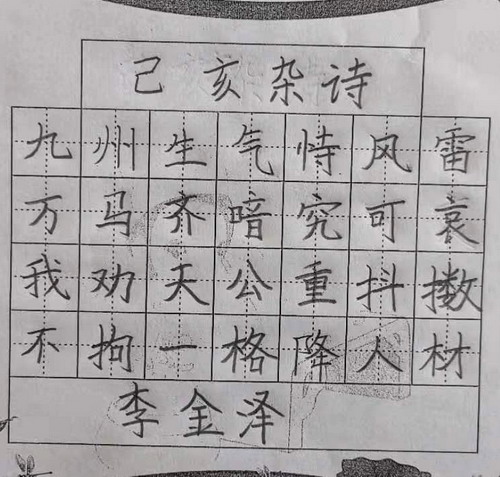 己亥杂诗
九州生气恃风雷
万马齐喑究可哀
我劝天公重抖擞
不拘一格降人材
李金泽